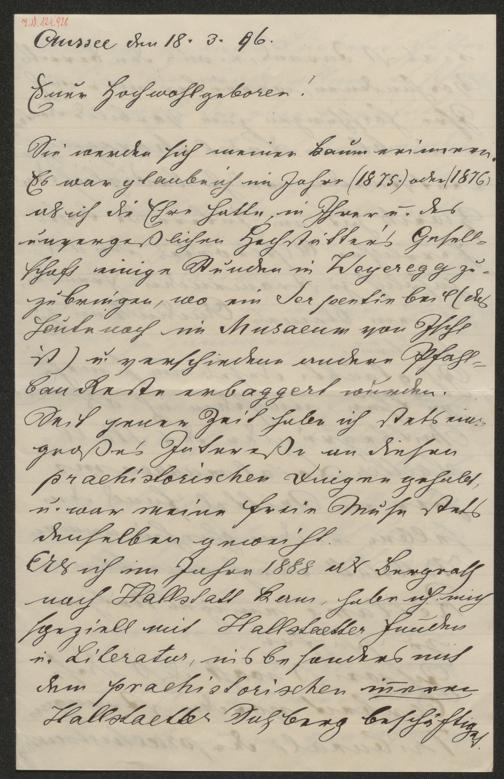 Aussee den 18. 3. 96.
Euer Hochwohlgeboren!
Sie werden sich meiner kaum erinnern.
Es war glaube ich im Jahre (1875) oder (1876)
als ich die Ehre hatte, in Ihrer u. des
unvergeßlichen Hochstätter's Gesell-
schaft einige Stunden in Weyeregg zu-
zubringen, wo ein Serpentinbeil (das
heute noch im Musaeum von Ischl
ist) u. verschiedene andere Pfahl-
bau Reste erbaggert wurden.
Seit jener Zeit habe ich stets ein
großes Interesse an diesen
praehistorischen Dingen gehabt,
u. war meine freie Muse stets
denselben geweiht.
Als ich im Jahre 1888 als Bergrath
nach Hallstatt kam, habe ich mich
speziell mit Hallstaetter Funden
u. Literatur, insbesonders mit
dem praehistorischen inneren
Hallstaetter Salzberg beschäftiget.